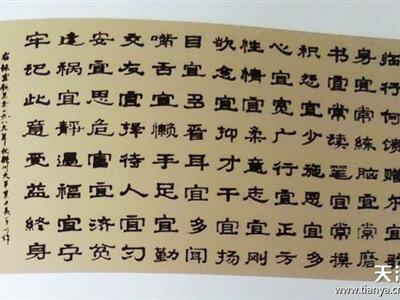 临行何馈赠尔宜歌
身宜常练脑宜常磨
书宜常读笔宜常摸
积怨宜少施恩宜多
心宜宽广行宜正方
性情宜柔宜刚
欲念宜抑才干宜扬
目宜多看耳宜多闻
嘴舌宜懒手足宜勤
交友宜择待人宜匀
安宜思危富宜济贫
逢祸宜静遇福宜宁
牢记此意受益终身
天涯
www.tianya.cn